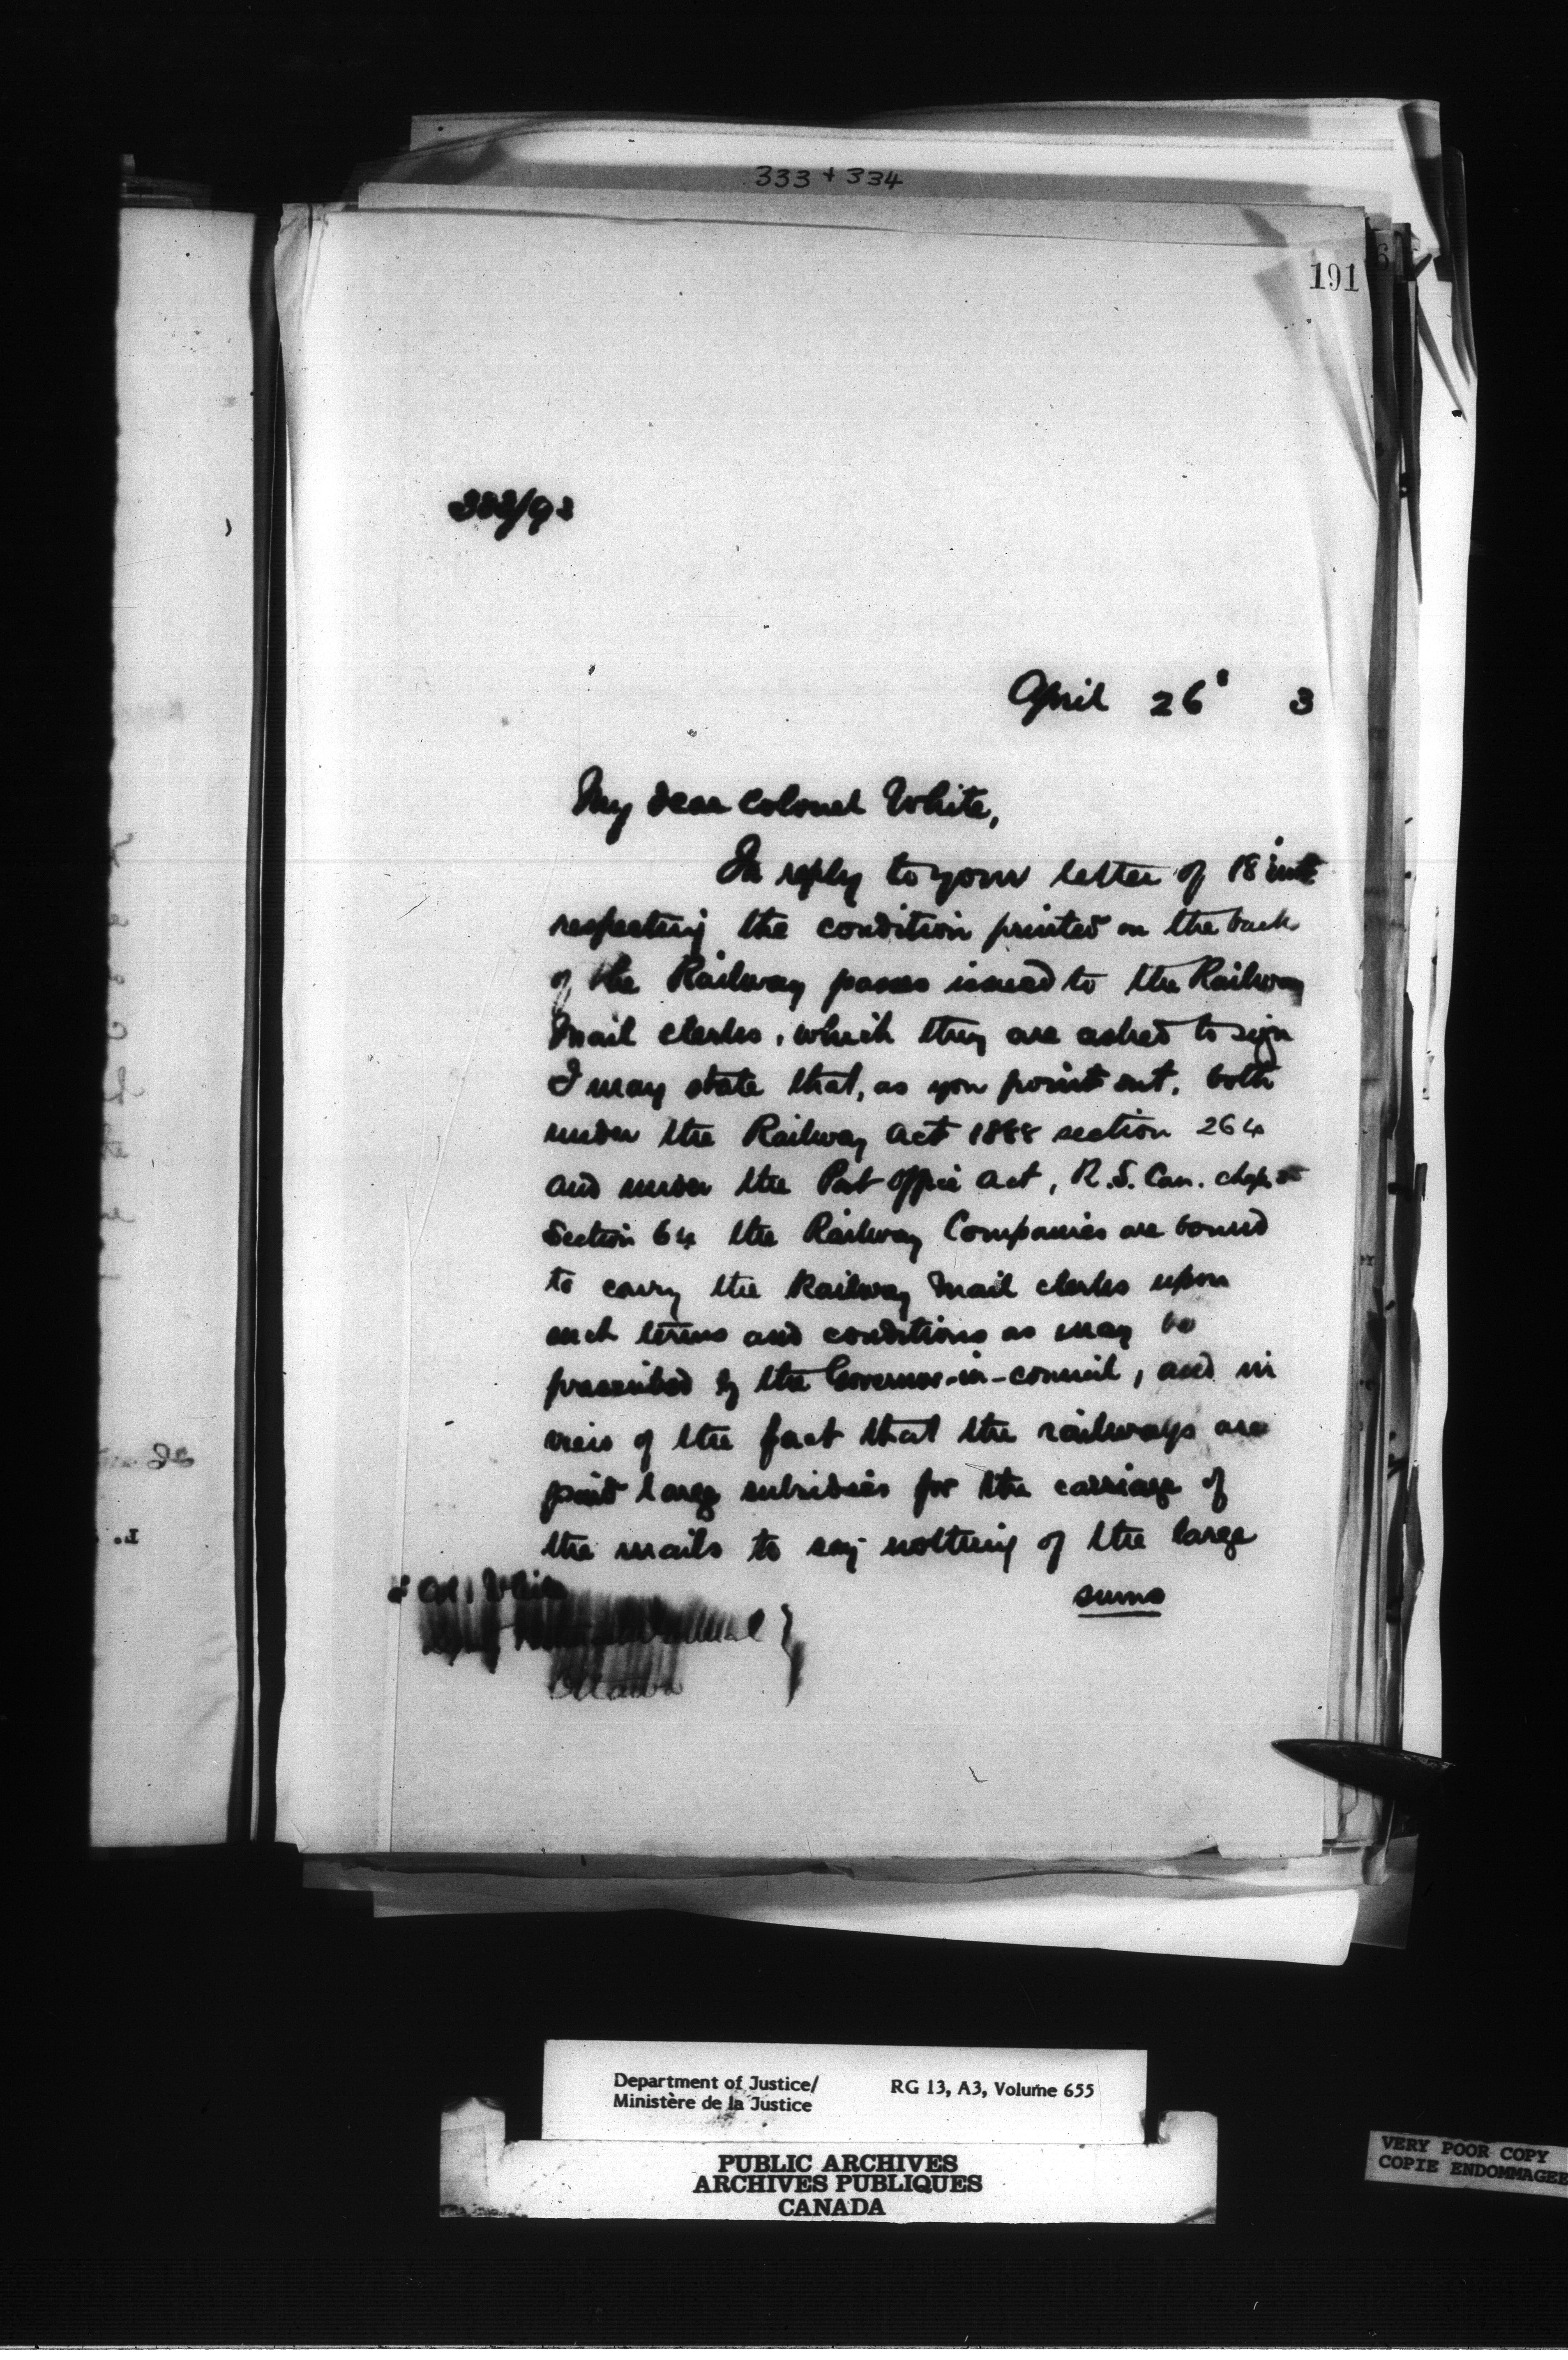 333 + 334
191
333/93
April 26' 3
My dear Colonel White,
In reply to your letter of 18' inst
respecting the condition printed on the back
of the Railway passes issued to the Railway
Mail clerks, which they are asked to sign
I may state that, as you point out, both
under the Railway Act 1888 section 264
and under the Post Office Act, R.S. Can. chap.
Section 64 the Railway Companies are bound
to carry the Railway Mail clerks upon
such terms and conditions as may be
prescribed by the Governor-in-council, and in
view of the fact that the railways are
paid large subsidies for the carriage of
the mails to say nothing of the large
sums
Col. White
Ottawa
Department of Justice/
Ministère de la Justice
RG 13, A3, Volume 655
PUBLIC ARCHIVES
ARCHIVES PUBLIQUES
CANADA
VERY POOR COPY
COPIE ENDOMMAGEE